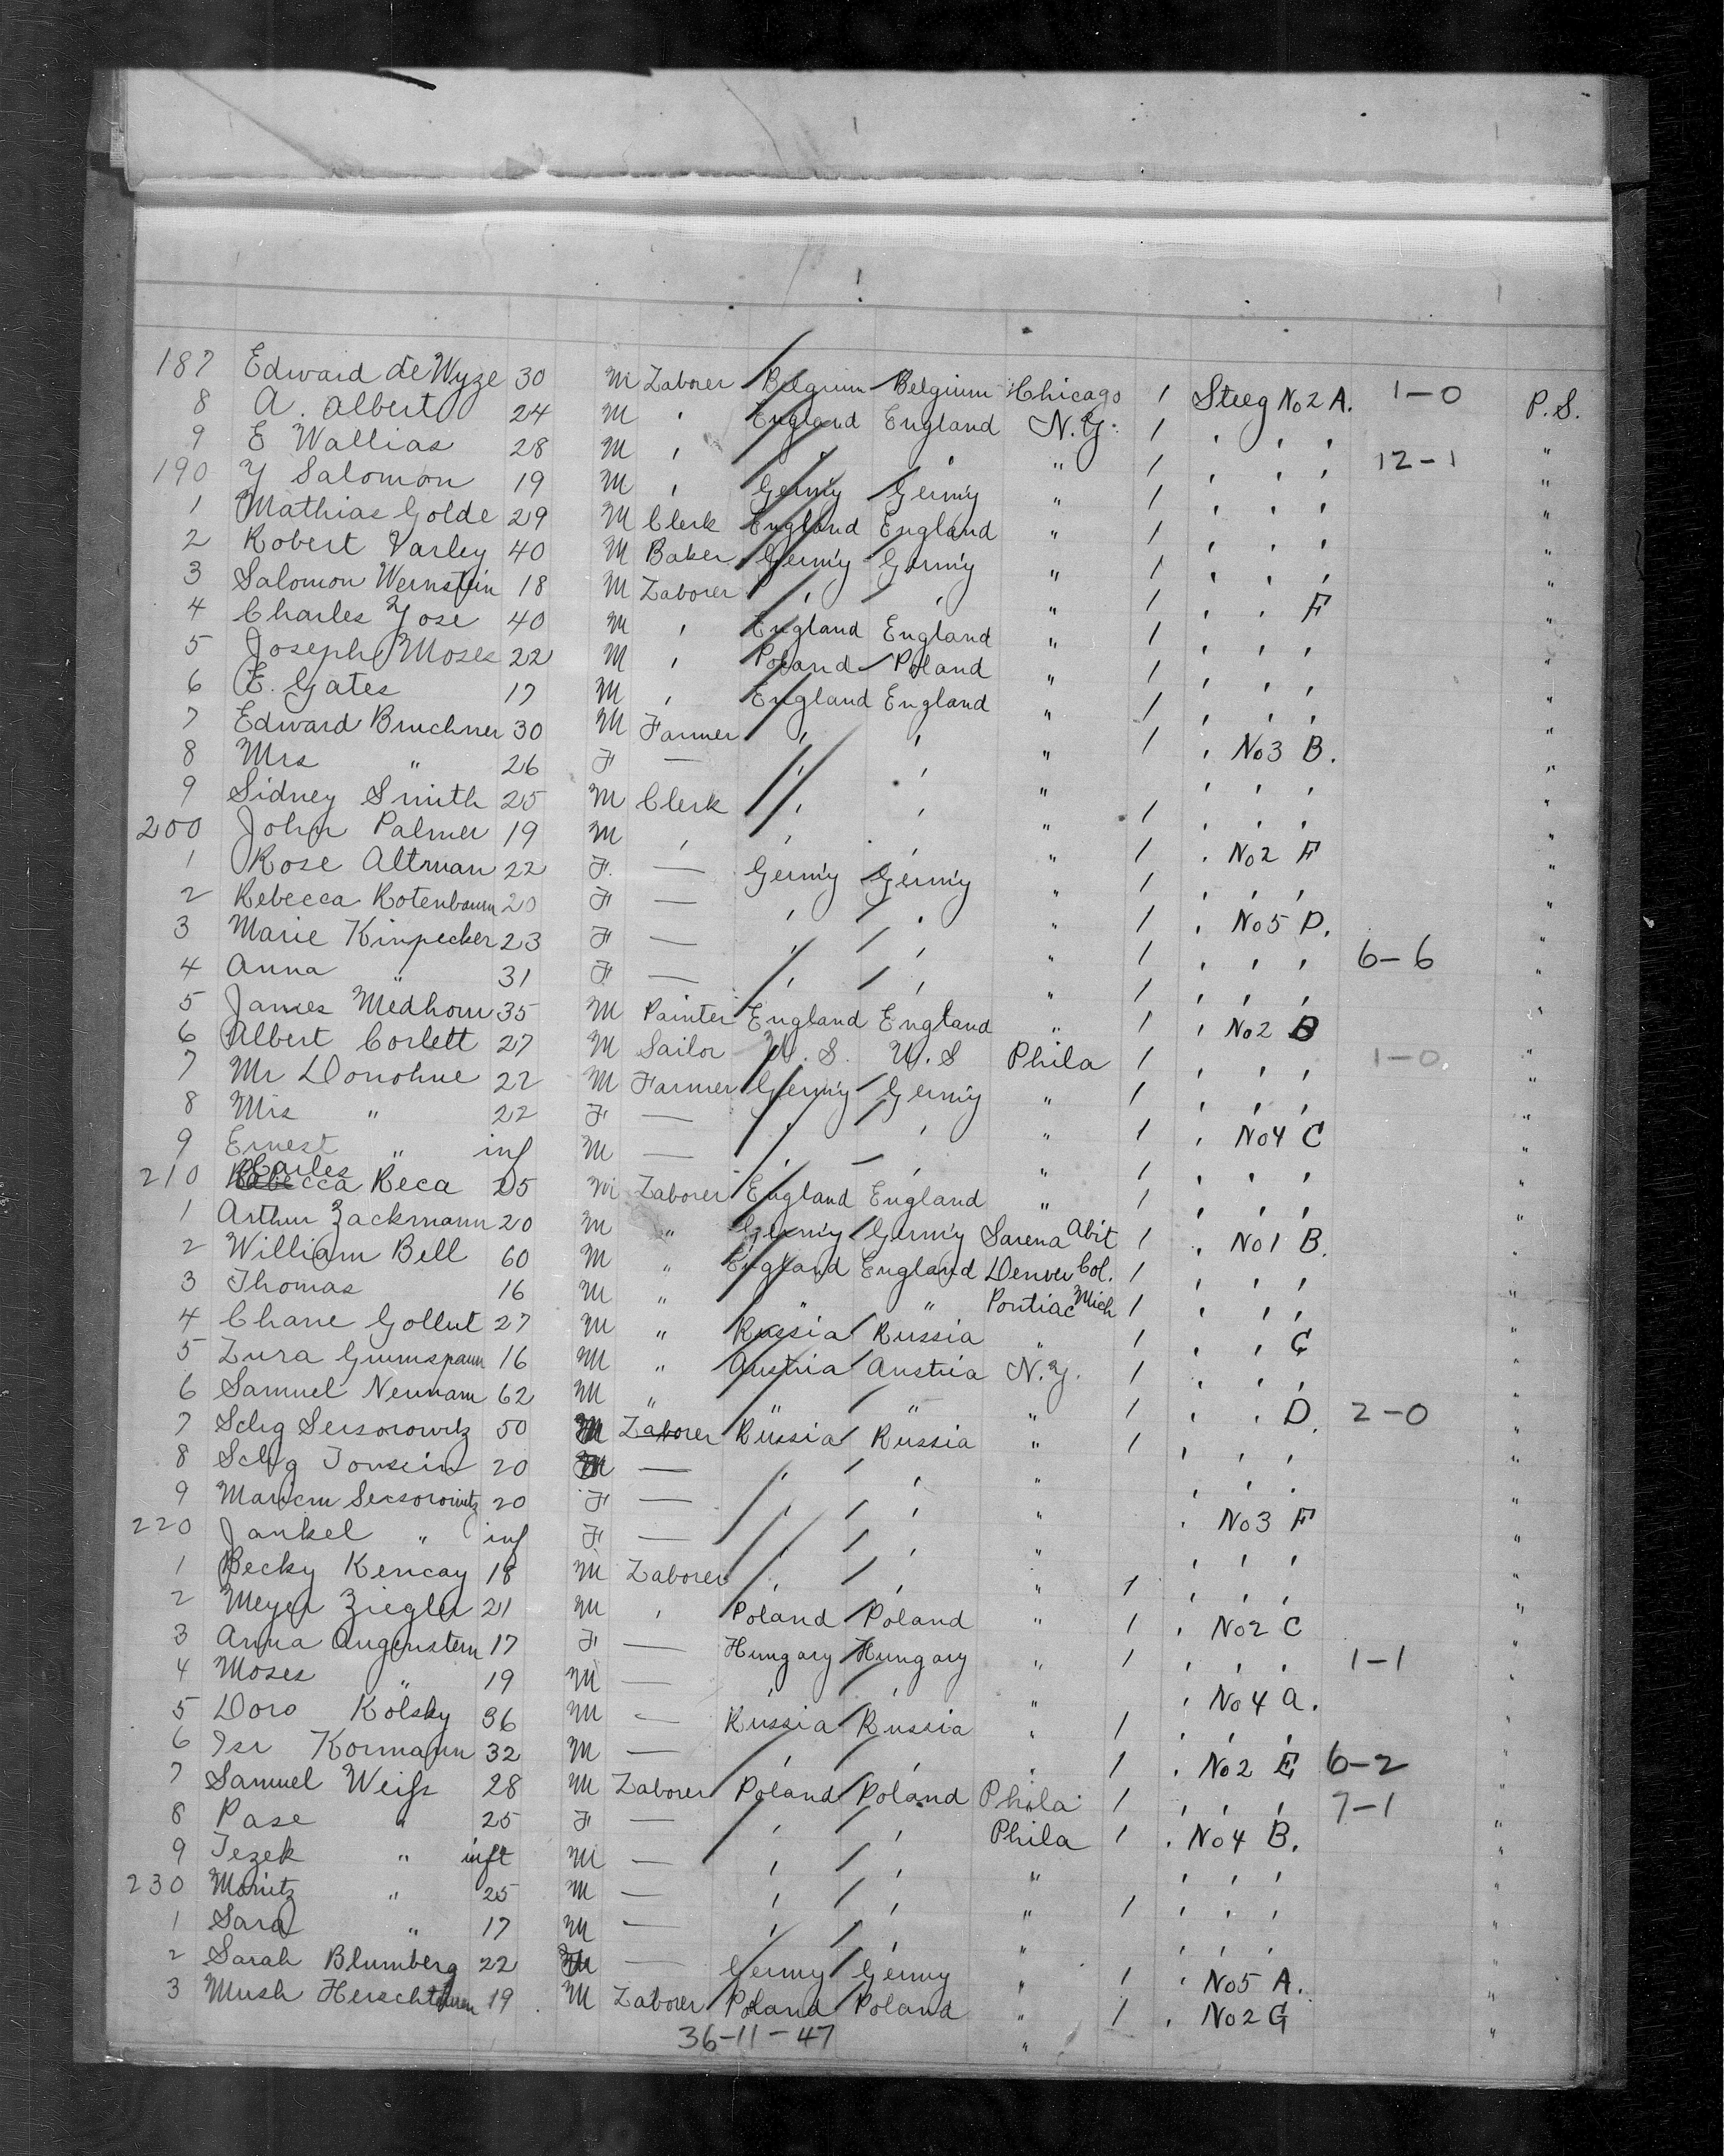 187 Edward de Wyze 30 M Laborer Belgium Belgium Chicago 1 Steeg No 2 A. 1-0 P.S.
8 A. Albert 24 M " England England N.Y. 1 " " " "
9 E Wallias 28 M " " " " 1 " " " 12-1 "
190 Y Salomon 19 M " Germ'y Germ'y " 1 " " " "
1 Mathias Golde 29 M Clerk England England " 1 " " " "
2 Robert Varley 40 M Baker Germ'y Germ'y " 1 " " " "
3 Salomon Wernstein 18 M Laborer " " " 1 " " F "
4 Charles Yose 40 M " England England " 1 " " " "
5 Joseph Moses 22 M " Poland Poland " 1 " " " "
6 E. Gates 17 M " England England " 1 " " " "
7 Edward Bruchner 30 M Farmer " " " 1 " No 3 B. "
8 Mrs " 26 F — " " " " " " "
9 Sidney Smith 25 M Clerk " " " 1 " " " "
200 John Palmer 19 M " " " " 1 " No 2 F "
1 Rose Altman 22 F. — Germ'y Germ'y " 1 " " " "
2 Rebecca Rotenbaum 20 F — " " " 1 " No 5 D. "
3 Marie Kinpecker 23 F — " " " 1 " " " 6-6 "
4 Anna " 31 F — " " " 1 " " " "
5 James Medhorn 35 M Painter England England " 1 " No 2 B "
6 Albert Corlett 27 M Sailor U.S. U.S Phila 1 " " " 1-0 "
7 Mr Donohue 22 M Farmer Germ'y Germ'y " 1 " " " "
8 Mrs " 22 F — " " " 1 " No 4 C "
9 Ernest " inf M — " " " 1 " " " "
210 Charles Reca 25 M Laborer England England " 1 " " " "
1 Arthur Zackmann 20 M " Germ'y Germ'y Sarena Abit 1 " No 1 B. "
2 William Bell 60 M " England England Denver Col. 1 " " " "
3 Thomas 16 M " " " Pontiac Mich 1 " " " "
4 Chane Gollut 27 M " Russia Russia " 1 " " C "
5 Lura Grunspann 16 M " Austria Austria N.Y. 1 " " " "
6 Samuel Neumann 62 M " " " " 1 " " D 2-0 "
7 Schg Sersorowitz 50 M Laborer Russia Russia " 1 " " " "
8 Schg Tonsein 20 — " " " " " " "
9 Mariem Sersorowitz 20 F — " " " " No 3 F "
220 Jankel " inf F — " " " " " " "
1 Becky Kencay 18 M Laborer " " " 1 " " " "
2 Meyer Ziegler 21 M " Poland Poland " 1 " No 2 C "
3 Anna Augenstern 17 F — Hungary Hungary " 1 " " " 1-1 "
4 Moses " 19 M — " " " " No 4 a. "
5 Doro Kolsky 36 M — Russia Russia " 1 " " " "
6 Isr Kormann 32 M — " " " 1 " No 2 E 6-2 "
7 Samuel Weiss 28 M Laborer Poland Poland Phila 1 " " " 7-1 "
8 Pase " 25 F — " " Phila 1 " No 4 B. "
9 Tezek " inft M — " " " " " " "
230 Moritz " 25 M — " " " 1 " " " "
1 Sara " 17 M — " " " " " " "
2 Sarah Blumberg 22 — Germy Germy " 1 " No 5 A. "
3 Mush 19 M Laborer Poland Poland " 1 " No 2 G "
36-11-47 "